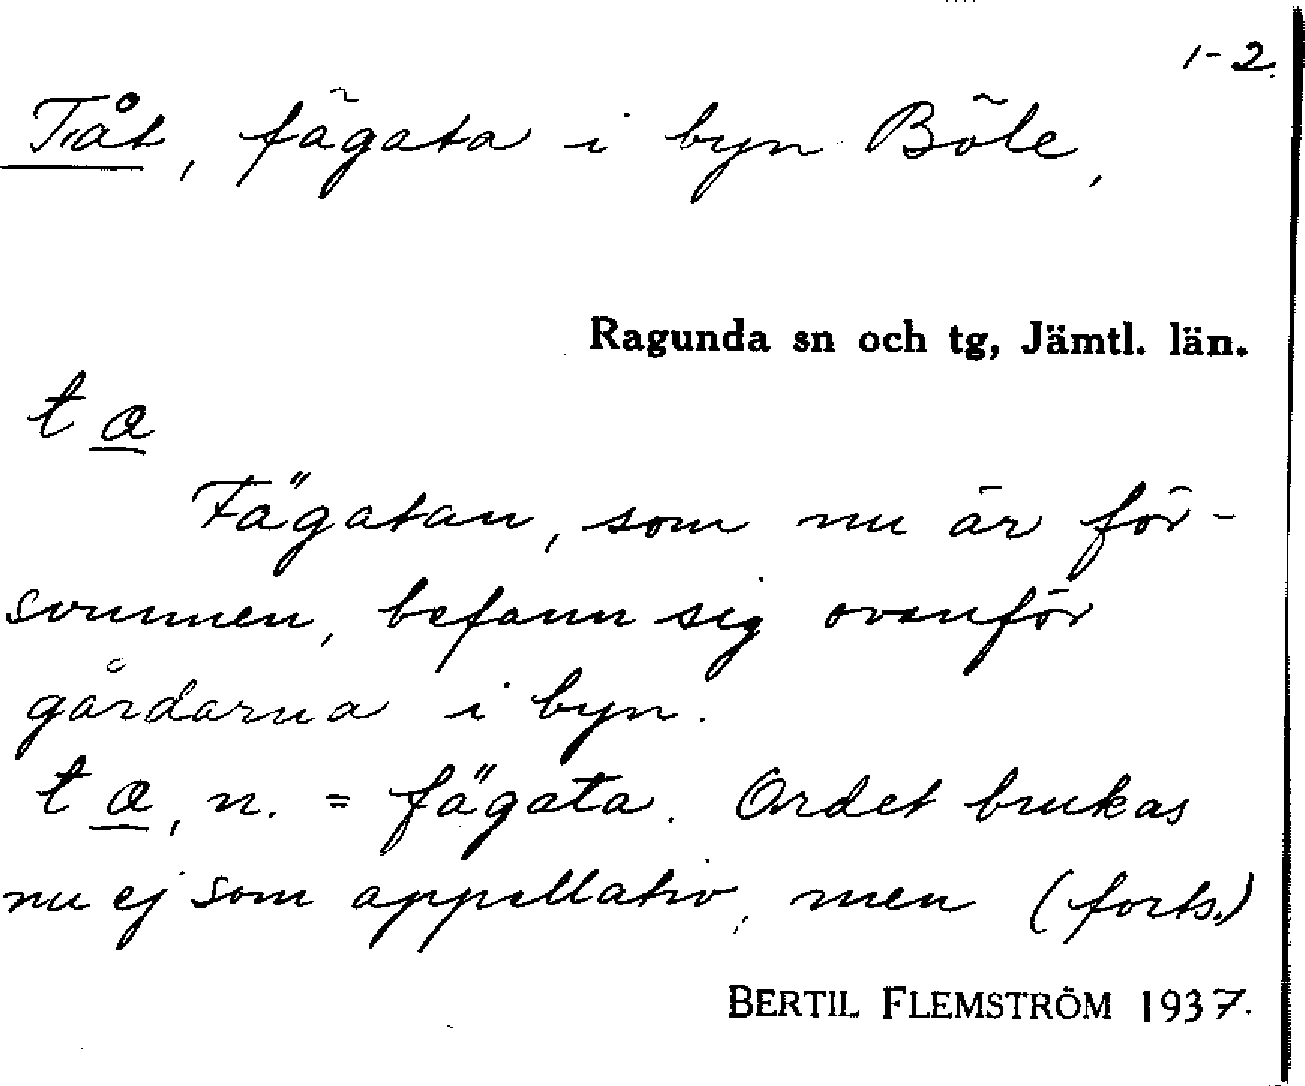 1-2.
Tåt, fägata i byn Böle,
Ragunda sn och tg, Jämtl. län.
t a
Fägatan, som nu är för-
svunnen, befann sig ovanför
gårdarna i byn.
t a, n. = fägata. Ordet brukas
nu ej som appellativ, men (forts.)
BERTIL FLEMSTRÖM 1937.